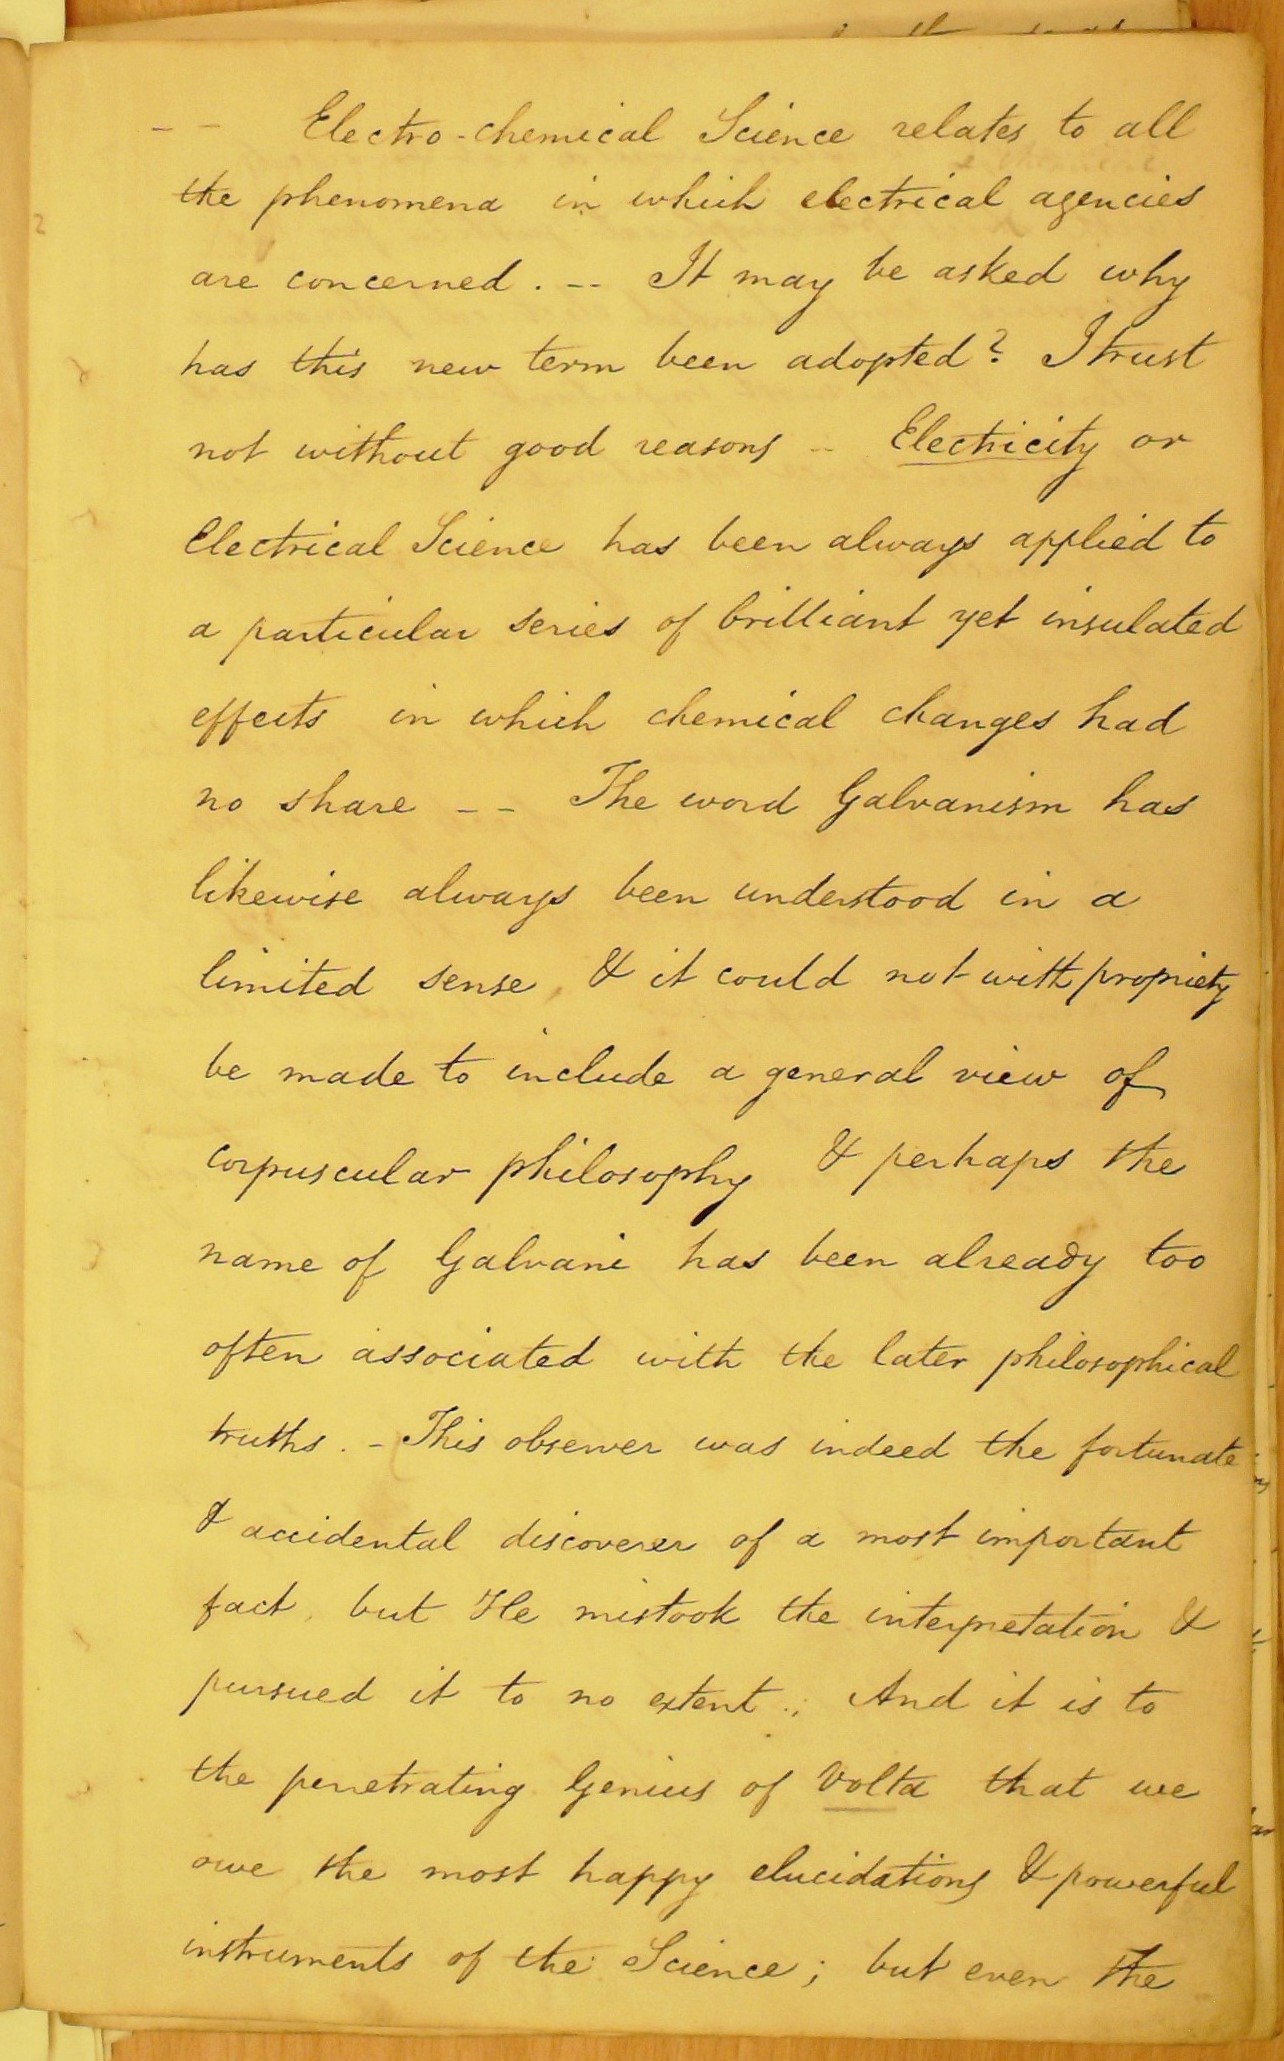 -- Electro-chemical Science relates to all
the phenomena in which electrical agencies
are concerned. -- It may be asked why
has this new term been adopted? I trust
not without good reasons -- Electricity or
Electrical Science has been always applied to
a particular series of brilliant yet insulated
effects in which chemical changes had
no share -- The word Galvanism has
likewise always been understood in a
limited sense, & it could not with propriety
be made to include a general view of
corpuscular philosophy & perhaps the
name of Galvani has been already too
often associated with the later philosophical
truths. - This observer was indeed the fortunate
& accidental discoverer of a most important
fact, but He mistook the interpretation &
pursued it to no extent.; And it is to
the penetrating Genius of Volta that we
owe the most happy elucidations & powerful
instruments of the Science; but even the